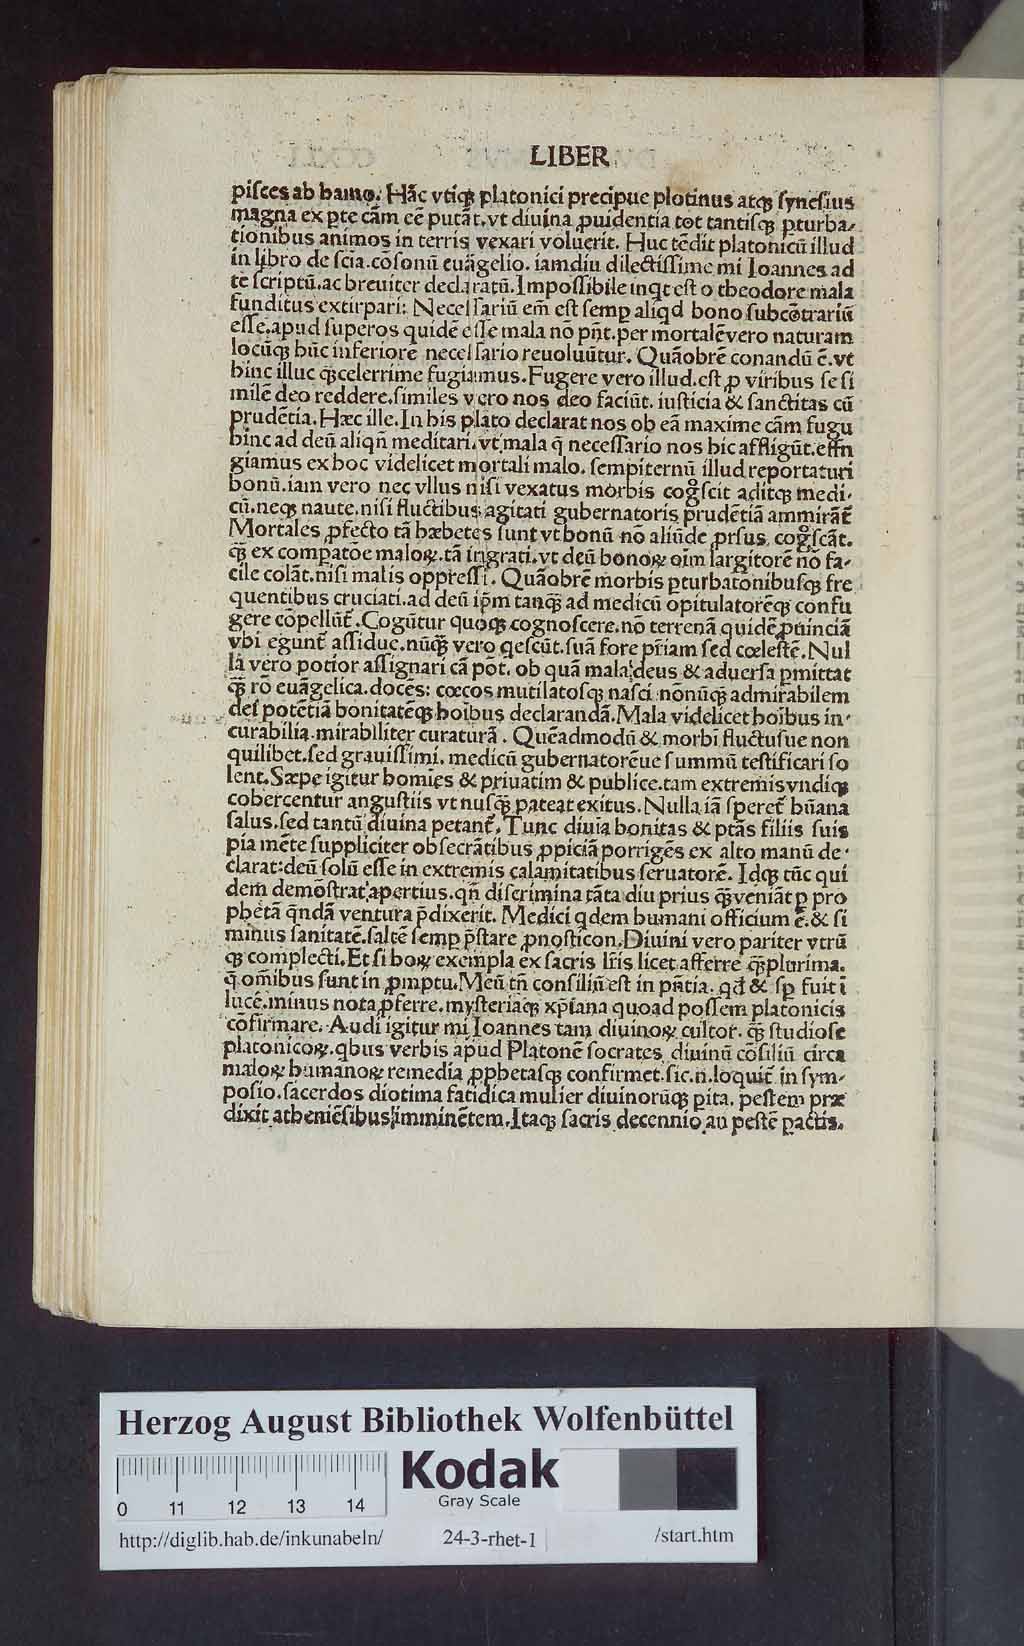 LIBER
piſces ab hamo. Hãc vtiqꝫ platonici precipue plotinus atqꝫ ſyneſius
magna ex ꝑte cãm eẽ putãt. vt diuina ꝓuidentia tot tantiſqꝫ ꝑturba⸗
tionibus animos in terris vexari voluerit. Huc tẽdit platonicũ illud
in libro de ſcĩa. cõſonũ euãgelio. iamdiu dilectiſſime mi Ioannes ad
te ſcriptũ. ac breuiter declaratũ. Impoſſibile inqt eſt o theodore mala
funditus extirpari: Neceſſariũ em̃ eſt ſemꝑ aliqd bono ſubcõtrariũ
eſſe. apud ſuperos quidẽ eſſe mala nõ pñt. per mortalẽ vero naturam
locũqꝫ hũc inferiorẽ neceſſario reuoluũtur. Quãobrẽ conandũ ẽ. vt
hinc illuc qꝫcelerrime fugiamus. Fugere vero illud. eſt ꝓ viribus ſe ſi
milẽ deo reddere. ſimiles vero nos deo faciũt. iuſticia & ſanctitas cũ
prudẽtia. Hæc ille. In his plato declarat nos ob eã maxime cãm fugã
hinc ad deũ aliqñ meditari. vt mala q̃ neceſſario nos hic affligũt. effu
giamus ex hoc videlicet mortali malo. ſempiternũ illud reportaturi
bonũ. iam vero nec vllus niſi vexatus morbis cogͦſcit aditqꝫ medi⸗
cũ. neqꝫ naute. niſi fluctibus agitati gubernatoris prudẽtiã ammirãt̃
Mortales ꝓfecto tã hæbetes ſunt vt bonũ nõ aliũde ꝓrſus cogͦſcãt.
qꝫ ex compatõe maloꝝ. tã ingrati. vt deũ bonoꝝ oĩm largitorẽ nõ fa⸗
cile colãt. niſi malis oppreſſi. Quãobrẽ morbis ꝑturbatonibuſqꝫ fre
quentibus cruciati. ad deũ ip̃m tanqꝫ ad medicũ opitulatorẽqꝫ confu
gere cõpellũt̃. Cogũtur quoqꝫ cognoſcere. nõ terrenã quidẽ ꝓuinciã
vbi egunt̃ aſſidue. nũqꝫ vero qeſcũt. ſuã fore pr̃iam ſed cœleſtẽ. Nul
la vero potior aſſignari cã põt. ob quã mala deus & aduerſa ꝑmittat
qꝫ rõ euãgelica. docẽs: cœcos mutilatoſqꝫ naſci nõnũqꝫ admirabilem
dei potẽtiã bonitatẽqꝫ hoĩbus declarandã. Mala videlicet hoĩbus in⸗
curabilia. mirabiliter curaturã. Quẽadmodũ & morbi fluctuſue non
quilibet. ſed grauiſſimi. medicũ gubernatorẽue ſummũ teſtificari ſo
lent. Sæpe igitur homĩes & priuatim & publice. tam extremis vndiqꝫ
cohercentur anguſtiis vt nuſqꝫ pateat exitus. Nulla iã ſperet̃ hũana
ſalus. ſed tantũ diuina petant̃. Tunc diuĩa bonitas & ptãs filiis ſuis
pia mẽte ſuppliciter obſecrãtibus ꝓpiciã porrigẽs ex alto manũ de⸗
clarat: deũ ſolũ eſſe in extremis calamitatibus ſeruatorẽ. Idqꝫ tũc qui
dem demõſtrat apertius. qñ diſcrimina tãta diu prius qꝫ veniãt ꝑ pro
phetã q̃ndã ventura p̃dixerit. Medici qdem humani officium ẽ. & ſi
minus ſanitatẽ. ſaltẽ ſemꝑ p̃ſtare ꝓnoſticon. Diuini vero pariter vtrũ
qꝫ complecti. Et ſi hoꝝ exempla ex ſacris lr̃is licet afferre qꝫplurima.
q̃ om̃ibus ſunt in ꝓmptu. Meũ tñ conſiliũ eſt in pñtia. qd̃ & ſꝑ fuit ĩ
lucẽ. minus nota ꝓferre. myſteriaqꝫ xp̃iana quoad poſſem platonicis
cõfirmare. Audi igitur mi Ioannes tam diuinoꝝ cultor. qꝫ ſtudioſe
platonicoꝝ. qbus verbis apud Platonẽ ſocrates diuinũ cõſiliũ circa
maloꝝ humanoꝝ remedia ꝓphetaſqꝫ confirmet. ſic. n. loquit̃ in ſym⸗
poſio. ſacerdos diotima fatidica mulier diuinorũqꝫ ꝑita. peſtem præ
dixit atheniẽſibus imminẽtem. Itaqꝫ ſacris decennio añ peſtẽ ꝑactis.
Herzog August Bibliothek Wolfenbüttel
0 11 12 13 14
Kodak
Gray Scale
http://diglib.hab.de/inkunabeln/ 24-3-rhet-1 /start.htm